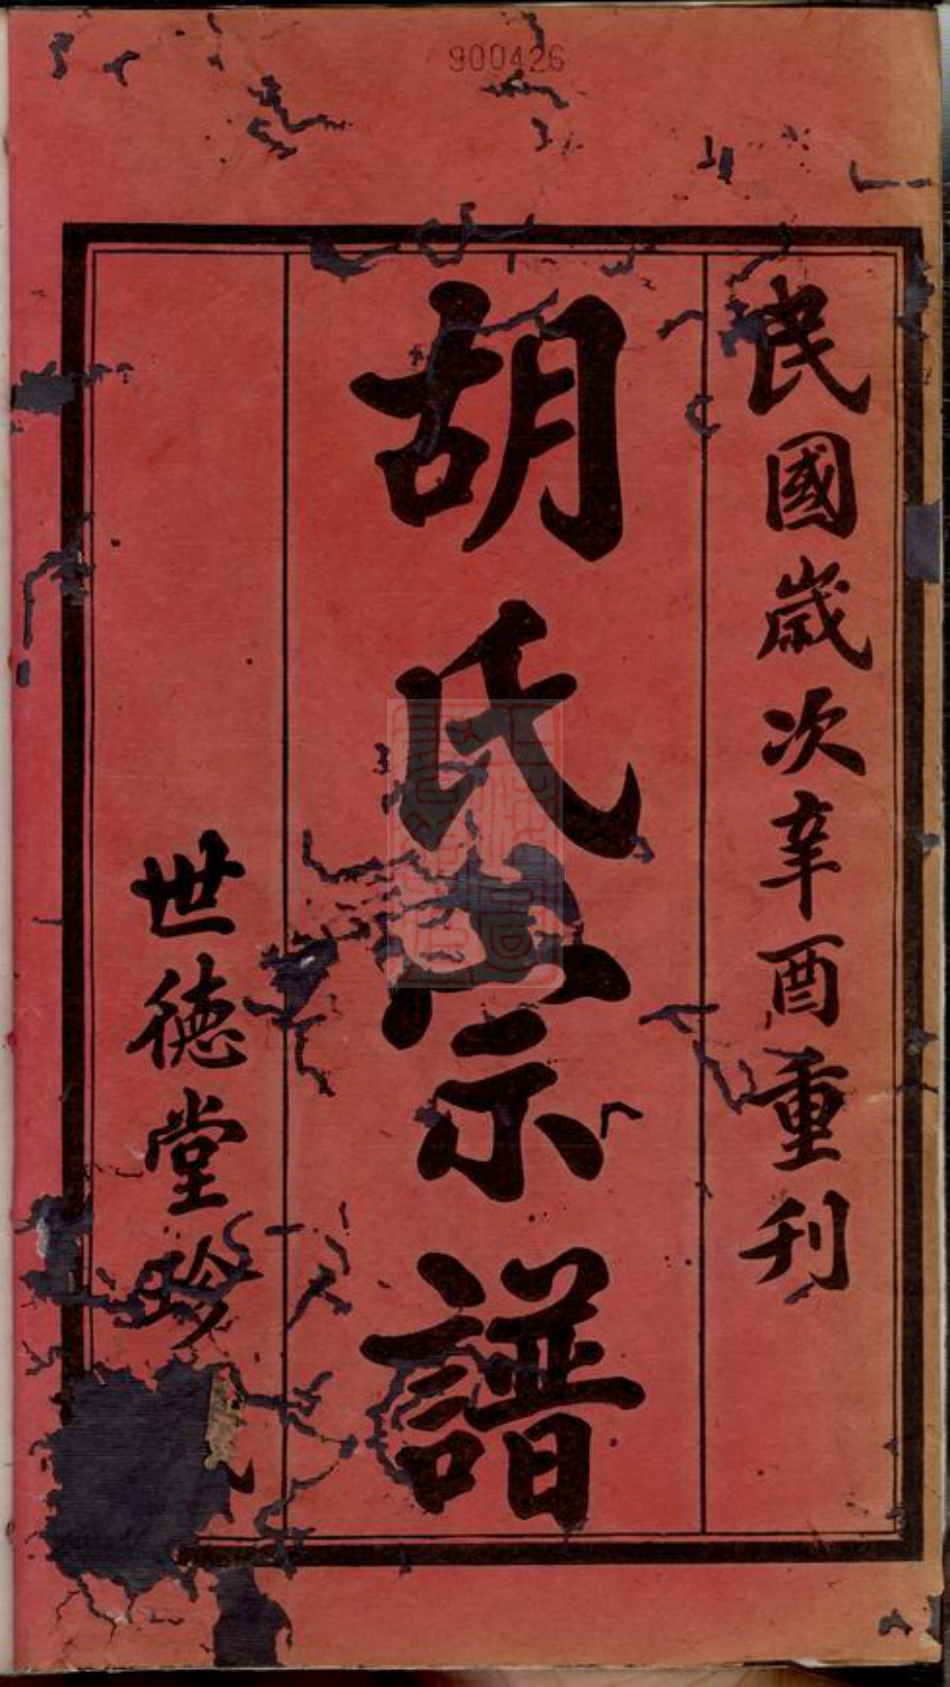 900426
民國歲次辛酉重刊
胡氏宗譜
世德堂珍